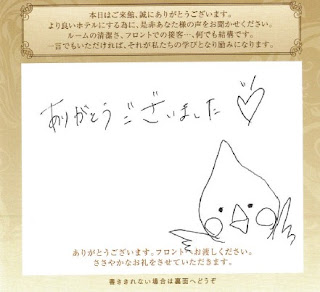 本日はご来館、誠にありがとうございます。
より良いホテルにする為に、是非あなた様の声をお聞かせください。
ルームの清潔さ、フロントでの接客…、何でも結構です。
一言でもいただければ、それが私たちの学びとなり励みになります。
ありがとうございました♡
ありがとうございます。フロントへお渡しください。
ささやかなお礼をさせていただきます。
書ききれない場合は裏面へどうぞ